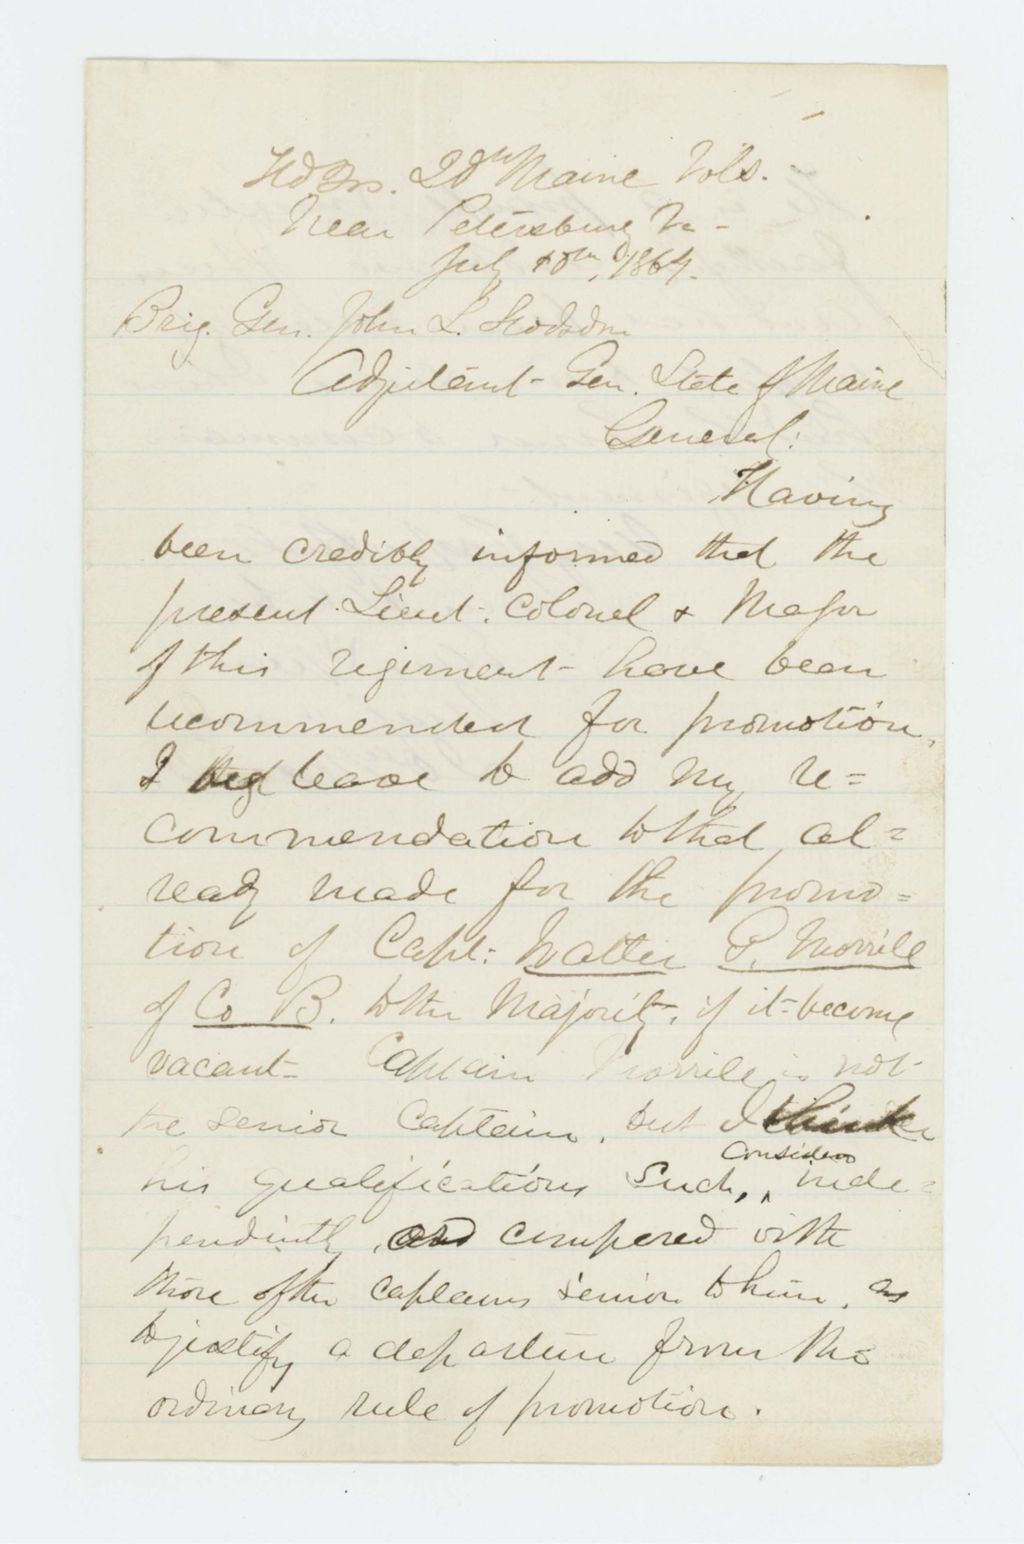 Hd Qrs. 20th Maine Vols.
Near Petersburg Va -
July 10th, 1864.
Brig. Gen. John L. Hodsdon
Adjutant Gen. State of Maine
General:
Having
been credibly informed that the
present Lieut. Colonel & Major
of this regiment have been
recommended for promotion,
I beg leave to add my re=
commendation to that al=
ready made for the promo=
tion of Capt. Walter G. Morrill
of Co B. to the Majority, if it become
vacant. Captain Morrill is not
the senior Captain, but I think
consider
his qualifications such, inde=
pendently, and compared with
those of the captains senior to him, as
to justify a departure from the
ordinary rule of promotion.